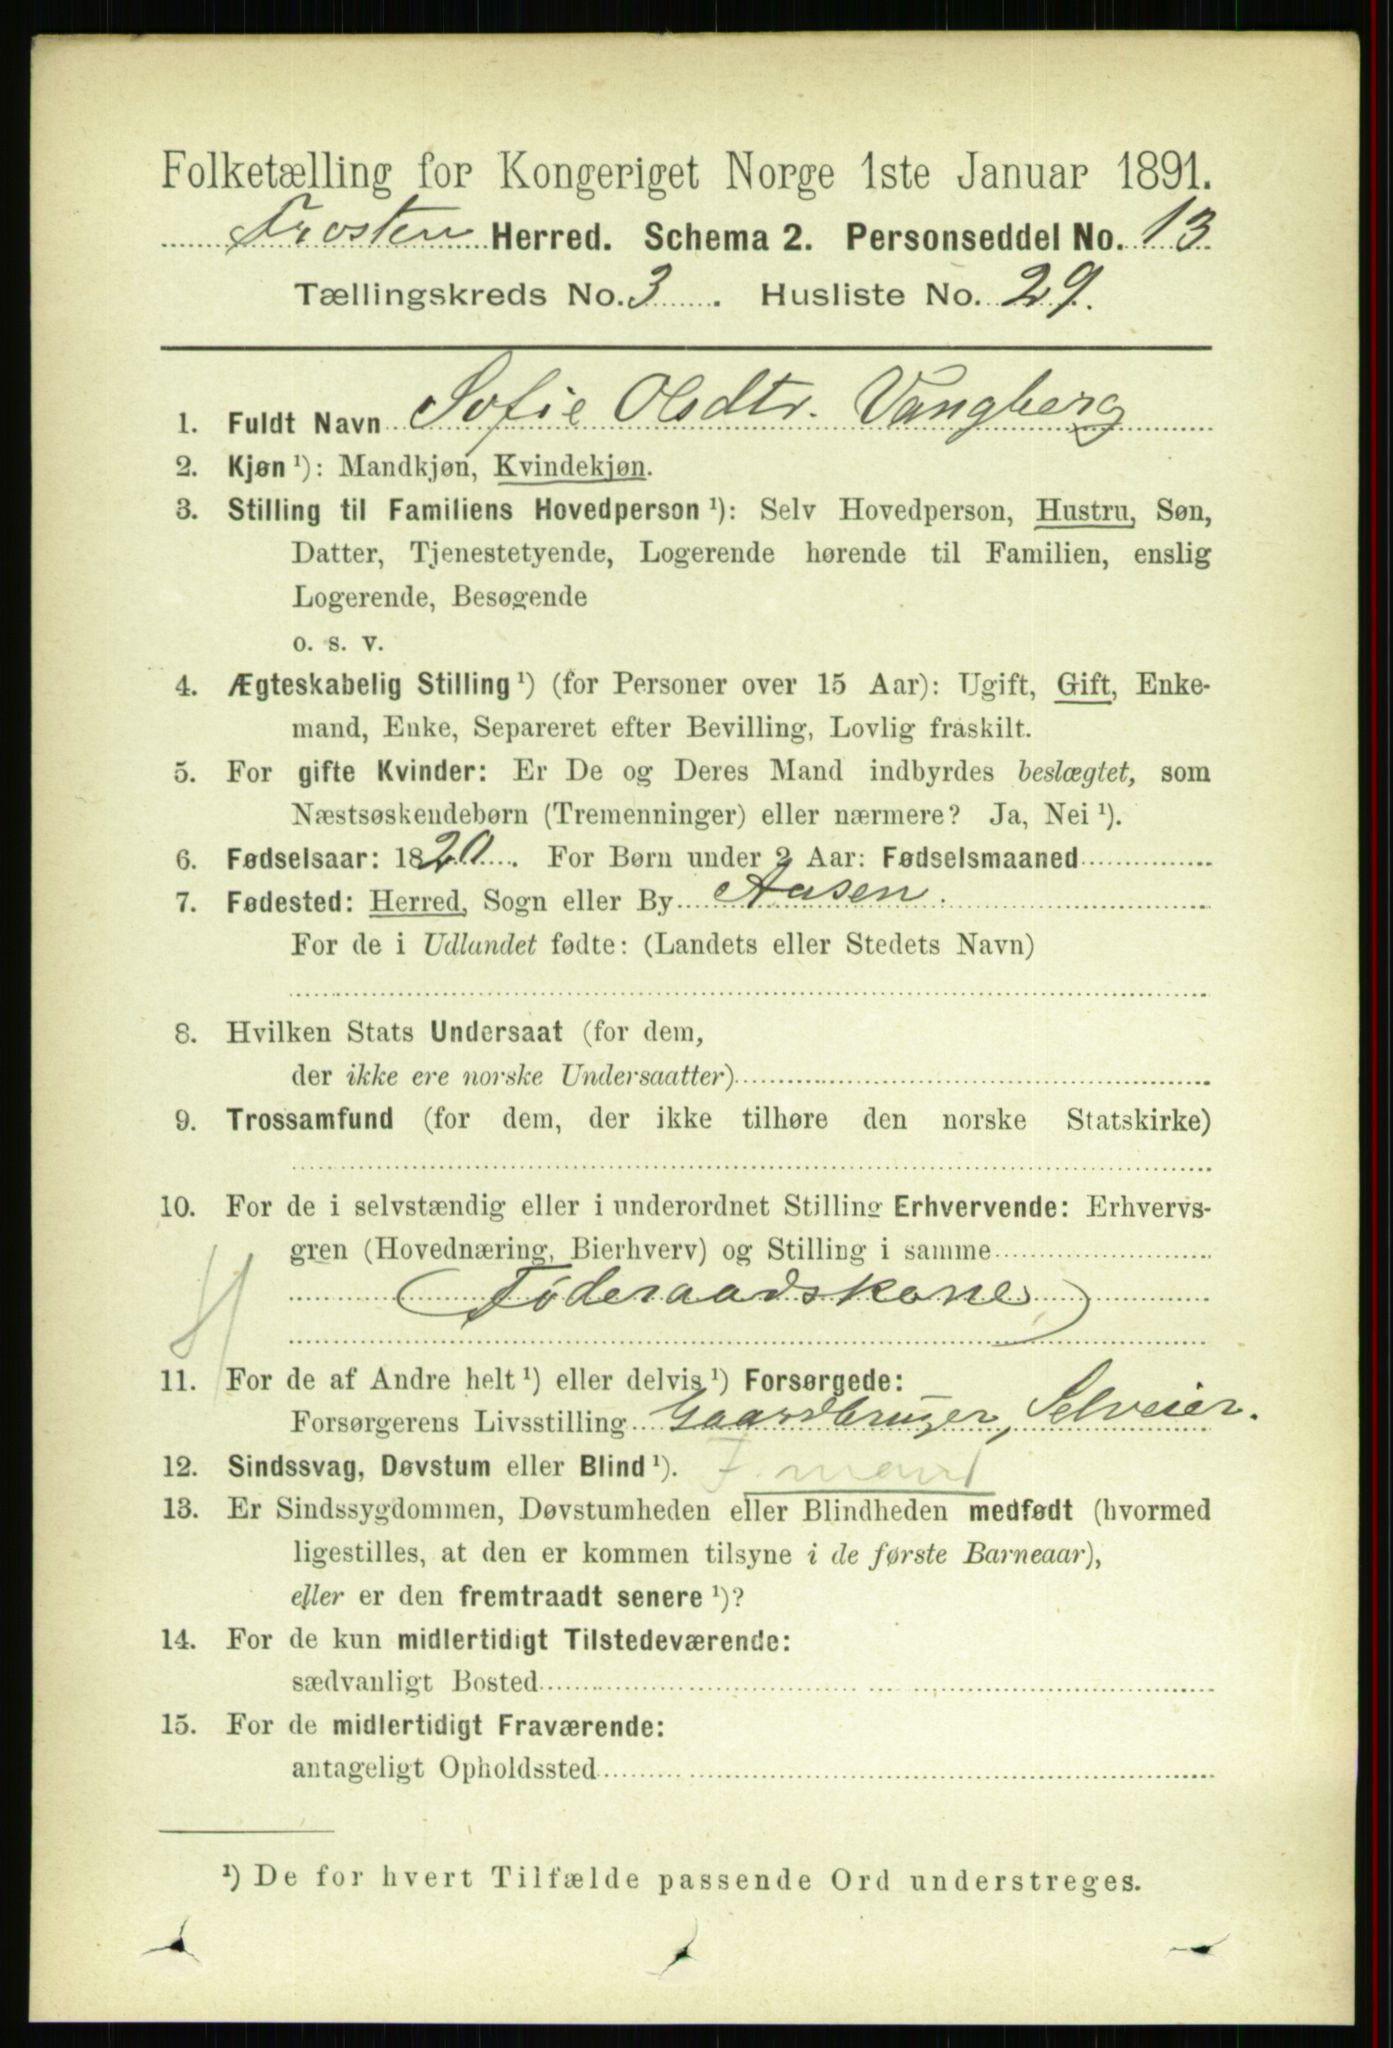 Folketælling for Kongeriget Norge 1ste Januar 1891.
Frosten Herred. Schema 2. Personseddel No. 13
Tællingskreds No. 3. Husliste No. 29.
1. Fuldt Navn Sofie Olsdtr. Vangberg
2. Kjøn ¹): Mandkjøn, Kvindekjøn.
3. Stilling til Familiens Hovedperson ¹): Selv Hovedperson, Hustru, Søn,
Datter, Tjenestetyende, Logerende hørende til Familien, enslig
Logerende, Besøgende
o. s. v.
4. Ægteskabelig Stilling ¹) (for Personer over 15 Aar): Ugift, Gift, Enke-
mand, Enke, Separeret efter Bevilling, Lovlig fraskilt.
5. For gifte Kvinder: Er De og Deres Mand indbyrdes beslægtet, som
Næstsøskendebørn (Tremenninger) eller nærmere? Ja, Nei ¹).
6. Fødselsaar: 1820. For Børn under 2 Aar: Fødselsmaaned
7. Fødested: Herred, Sogn eller By Aasen.
For de i Udlandet fødte: (Landets eller Stedets Navn)
8. Hvilken Stats Undersaat (for dem,
der ikke ere norske Undersaatter)
9. Trossamfund (for dem, der ikke tilhøre den norske Statskirke)
10. For de i selvstændig eller i underordnet Stilling Erhvervende: Erhvervs-
gren (Hovednæring, Bierhverv) og Stilling i samme
(Føderaadskone)
11. For de af Andre helt ¹) eller delvis ¹) Forsørgede:
Forsørgerens Livsstilling Gaardbruger, Selveier.
12. Sindssvag, Døvstum eller Blind ¹). F. mand
13. Er Sindssygdommen, Døvstumheden eller Blindheden medfødt (hvormed
ligestilles, at den er kommen tilsyne i de første Barneaar),
eller er den fremtraadt senere ¹)?
14. For de kun midlertidigt Tilstedeværende:
sædvanligt Bosted
15. For de midlertidigt Fraværende:
antageligt Opholdssted
¹) De for hvert Tilfælde passende Ord understreges.